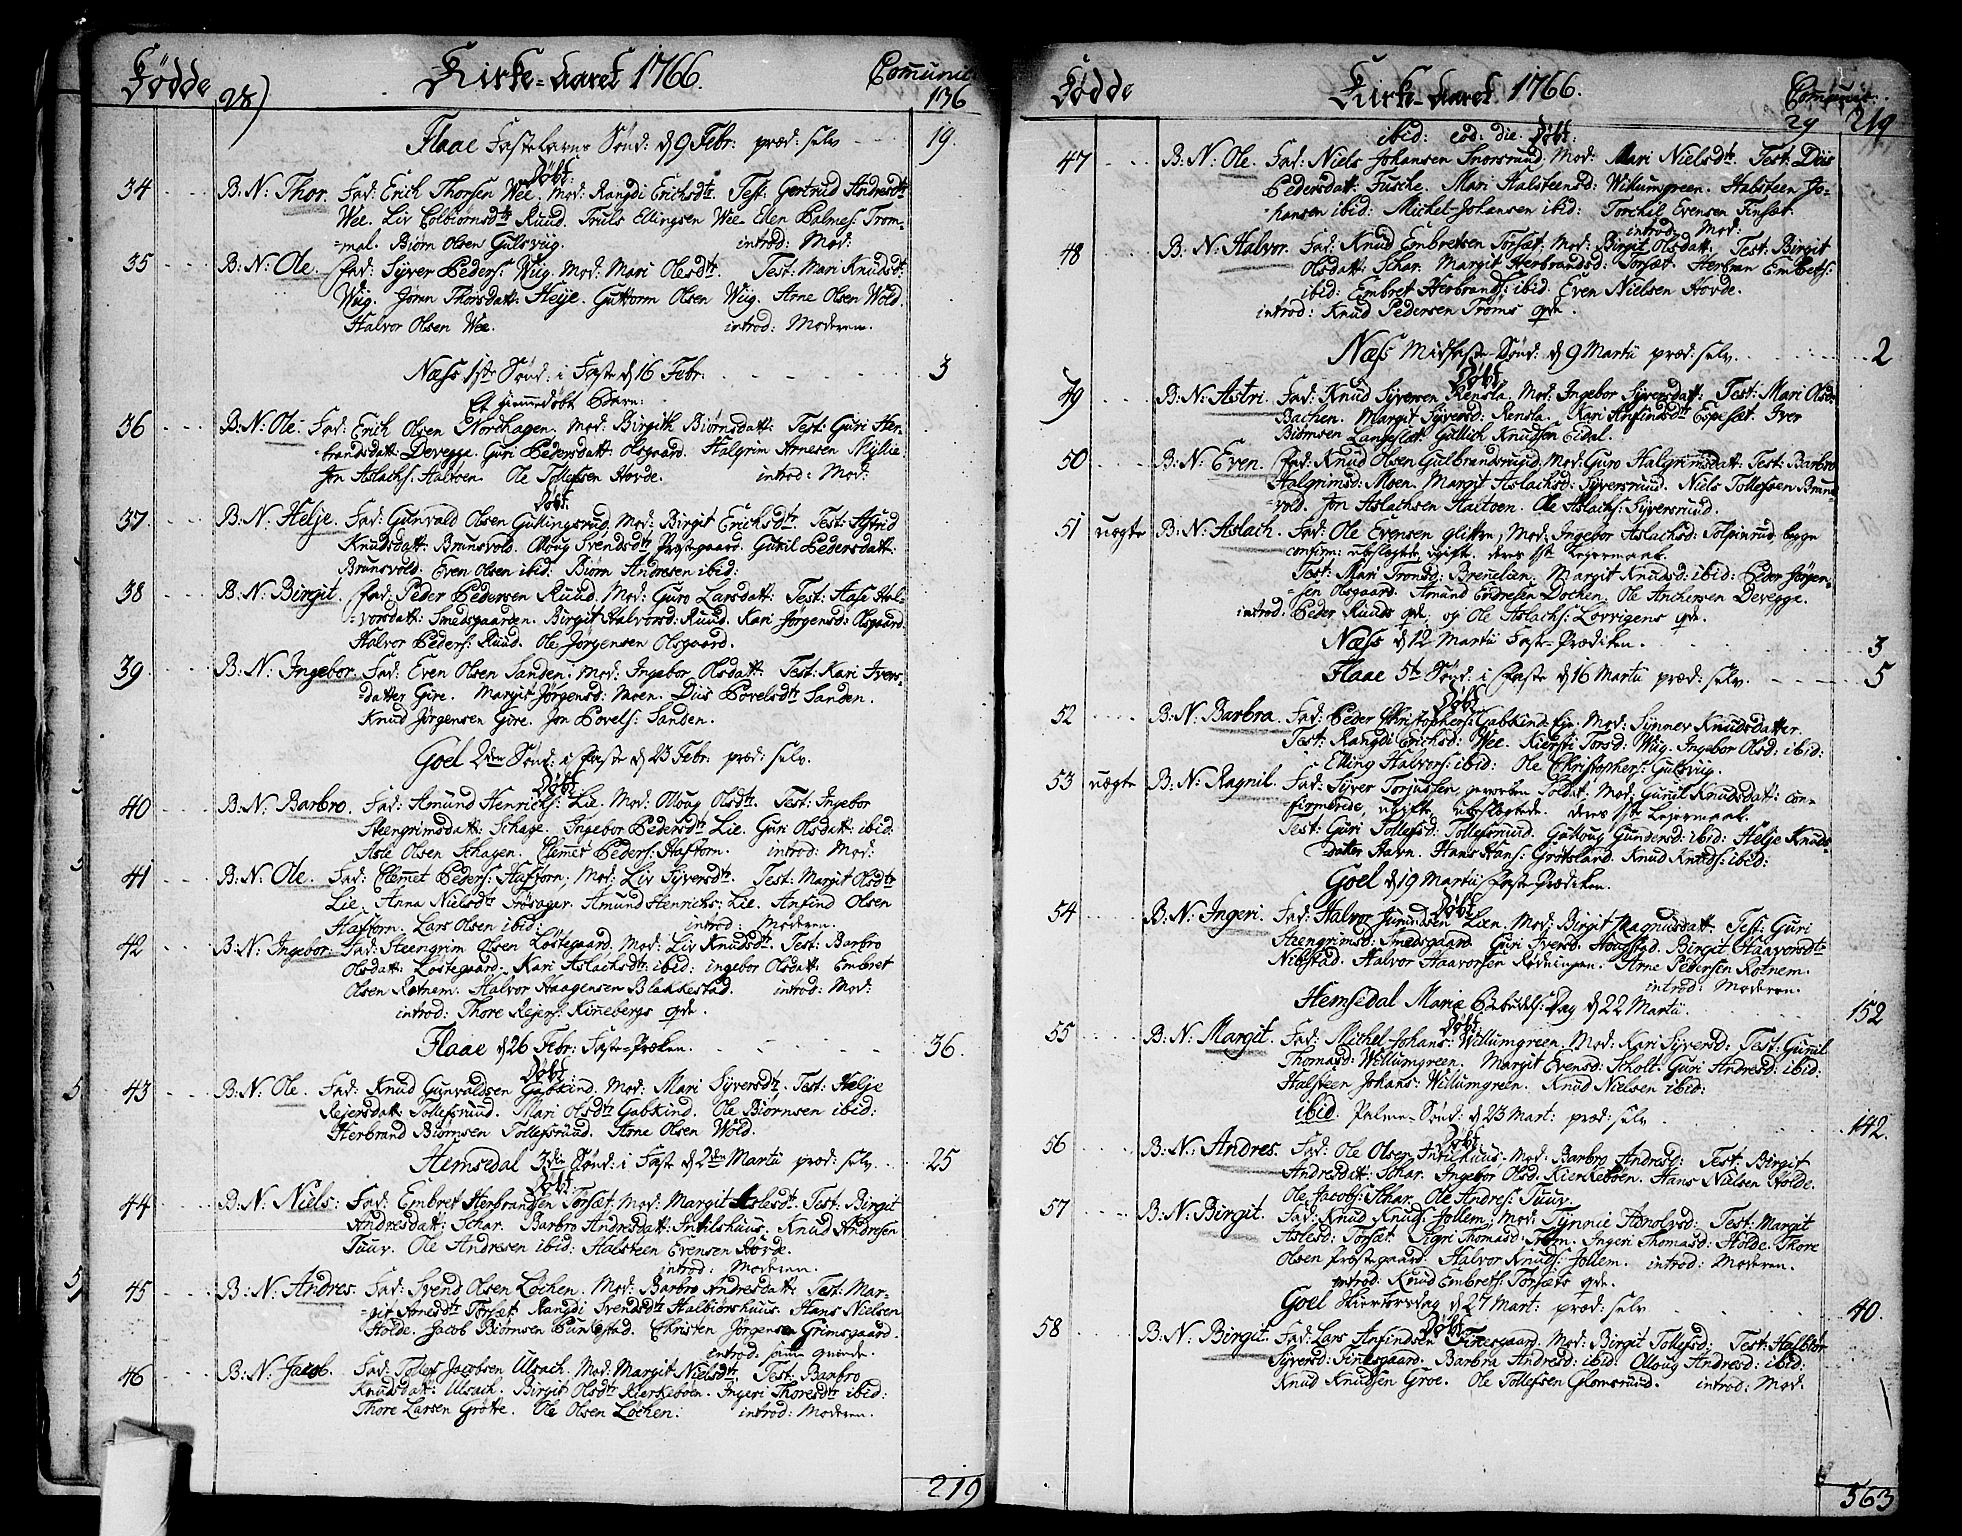 Fødde Kirke-Aaret 1766. Comunic.
28) 136
Flaae Fastelavns Sønd: d 9 Febr: præd: selv 19.
Døbt
34 B: N: Thor. Fad: Erich Thorsen Wee. Mod: Rangdi Erichsdtr. Test: Gertrud Andresdtr
Wee. Liv Colbiornsdtr Ruud. Truls Ellingsen Wee. Eden Palmes: Trom-
mal. Biørn Olsen Gulsvüg. introd: Mod:
35 B: N: Ole. Fad: Syver Peders: Wüg. Mod: Mari Olesdtr. Test: Mari Knudsdt:
Wüg. Jøran Thorsdatt: Heije. Guttorm Olsen Wüg. Arne Olsen Wold.
Halvor Olsen Wee. introd: Moderen.
Næss 1ste Sønd: i Faste d 16 Febr. 3
Et hiemmedøbt Barn:
36 B: N: Ole. Fad: Erich Olsen Nordhagen. Mod: Birgith Biørnsdatt: Test: Guri Her-
brandsdatt: Devegge. Guri Pedersdatt: Olsgaard. Halgrim Arnesen Myllie
Jon Aslachs: Haltoen. Ole Tollefsen Hovde. introd: Mod:
Døbt.
37 B: N: Helje. Fad: Gunvald Olsen Gullingsrud. Mod: Birgit Erichsdtr. Test: Astrid
Knudsdatt: Brunsvold. Olloug Svendsdtr Præstgaard. Gunil Pedersdatt:
Brunsvold. Even Olsen ibid: Biørn Andresen ibid:
38 B: N: Birgit. Fad: Peder Pedersen Ruud. Mod: Guro Larsdatt: Test: Aase Hal-
vorsdatt: Smedsgaarden. Birgit Halvorsd: Ruud. Kari Jørgensd: Olsgaard.
Halvor Peders: Ruud. Ole Jørgensen Olsgaard.
39 B: N: Ingebor. Fad: Even Olsen Sanden. Mod: Ingebor Olsdatt: Test: Kari Ivers-
datter Gire. Margit Jørgensd: Moen. Dius Povelsdtr Sanden.
Knud Jørgensen Gire. Jon Povels: Sanden.
Goel 2den Sønd: i Faste d 23 Febr: præd: selv.
Døbt
40 B: N: Barbro. Fad: Amund Henrichs: Lie. Mod: Olloug Olsdtr. Test: Ingebor
Steengrimsdatt: Schage. Ingebor Pedersdtr Lie. Guri Olsdatt: ibid:
Asle Olsen Schagen. Clemet Peders: Haftorn. introd: Mod:
41 B: N: Ole. Fad: Clemet Peders: Haftorn, Mod: Liv Syversdtr. Test: Margit Olsdtr
Lie. Anna Nielsdtr Trøsager. Amund Henrichs: Lie. Anfind Olsen
Haftorn. Lars Olsen ibid: introd: Moderen.
42 B: N: Ingebor. Fad: Steengrim Olsen Løstegaard. Mod: Liv Knudsdtr. Test: Barbro
Olsdatt: Løstegaard. Kari Aslachsdtr ibid: ingebor Olsdatt: Embret
Olsen Rotnem. Halvor Haagensen Blakkestad. introd: Mod:
introd: Thore Rejers: Kinebergs qvde.
Flaae d 26 Febr: Faste-Præken. 36.
Døbt
5 43 B: N: Ole. Fad: Knud Gunvaldsen Gabkind. Mod: Mari Syversdtr. Test: Helje
Rejersdatt: Tollefsrud. Mari Olsdtr Gabkind. Ole Biørnsen ibid:
Herbrand Biørnsen Tollefsrüud. Arne Olsen Wold.
Hemsedal 3die Sønd: i Faste d 2den Martii præd: selv 25
Døbt.
44 B: N: Niels: Fad: Embret Herbrandsen Torset. Mod: Margit Aslesdtr. Test: Birgit
Andresdatt: Schar. Barbro Andresdatt: Intilshuus. Knud Andresen
Tuuv. Ole Andresen ibid: Halsteen Evensen Hovde.
introd: Moderen.
5 45 B: N: Andres. Fad: Svend Olsen Løchen. Mod: Barbro Andresdatt: Test: Mar-
git Arnesdtr Torset. Rangdi Svendsdtr Halbiørshuus. Hans Nielsen
Holde. Jacob Biørnsen Punkestad. Christen Jørgensen Grimsgaard.
introd: samme qvinde.
46 B: N: Jacob. Fad: Tollef Jacobsen Ulsach. Mod: Margit Nielsdtr. Test: Barbro
Knudsdatt: Ulsach. Birgit Olsdtr Kierkebøen. Ingeri Thoresdtr ibid:
Thore Larsen Grøtte. Ole Olsen Løchen: introd: Moderen.
219
Fødde Kirke-Aaret 1766. Comunic:
29 219
ibid: eod: die. Døbt:
47 B: N: Ole. Fad: Niels Johansen Snorsrund, Mod: Mari Nielsdtr. Test: Dius
Pedersdatt: Fusche. Mari Halsteensd: Willumgreen. Halsteen Jo-
hansen ibid: Michel Johansen ibid: Torchil Evensen Finset.
introd: Mod:
48 B: N: Halvor. Fad: Knud Embretsen Torset. Mod: Birgit Olsdatt: Test: Birgit
Olsdatt: Schar. Margit Herbrandsd: Torset. Herbran Embrets:
ibid: Embret Herbrands: ibid: Even Nielsen Hovde.
introd: Knud Pedersen Trøms qvde.
Næss Midfaste-Sønd: d 9 Martii præd: selv. 2
Døbt
49 B: N: Astri. Fad: Knud Syversen Rensla. Mod: Ingebor Syversdatt: Test: Mari Olsd:
Bachen. Margit Syversd: Rensla. Kari Anfindsdtr Espeset. Iver
Biørnsen Langeslet. Gullich Knudsen Eidal.
50 B: N: Even. Fad: Knud Olsen Gulbrandsrud, Mod: Guro Halgrimsdatt: Test: Barbro
Halgrimsd: Moen. Margit Aslachsd: Syversruud. Niels Tollefsen Bruns-
vold. Jon Aslachsen Haltoen. Ole Aslachs: Syversruud.
51 uægte B: N: Aslach. Fad: Ole Evensen Glittre, Mod: Ingebor Aslachsd: Tolpinrud, begge
confirm: ubeslægtet, ugifte. deres 1ste Lejermaal.
Test: Mari Tronsd: Brenelien. Margit Knudsd: ibid: Peder Jørgen-
sen Olsgaard. Amund Endresen Dochen. Ole Anchersen Devegge.
introd: Peder Ruuds qvde, og Ole Aslachs: Lovrigens qvde.
Næss d 12 Martii Faste-Prædiken. 3
Flaae 5te Sønd: i Faste d 16 Martii præd: selv. 5
Døbt
52 B: N: Barbra. Fad: Peder Christophers: Gabkind-Ejn. Mod: Sünnev Knudsdatter.
Test: Rangdi Erichsd: Wee. Kiersti Torsd: Wüg. Ingebor Olsd: ibid:
Elling Halvors: ibid: Ole Christophers: Gulsvüg.
53 uægte B: N: Ragnil. Fad: Syver Torjudsen, geworben Soldat. Mod: Gunil Knudsdatt: con-
firmerede, ugifte, ubeslægtede. deres 1ste Lejermaal.
Test: Guri Tollefsd: Tollefsruud. Gølloug Gundersd: ibid: Helje Knuds-
datter Havn. Hans Hans: Grøtsland. Knud Knuds: ibid:
Goel d 19 Martii Faste-Prædiken.
Døbt
54 B: N: Ingeri. Fad: Halvor Lien. Mod: Birgit Magnusdatt. Test: Guri
Steengrimsd: Smedsgaard. Guri Iversd: Hougstad. Birgit Haavorsdtr
Nibstad. Halvor Haavorsen Rødningen. Arne Pedersen Rotnem.
introd: Moderen.
Hemsedal Mariæ Bebudels: Dag d 22 Martii. 152
Døbt.
55 B: N: Margit. Fad: Michel Johans: Willumgreen. Mod: Kari Syversd: Test: Gunil
Thomasd: Willumgreen. Margit Evensd: Scholt. Guri Andresd: ibid:
Halsteen Johans: Willumgreen. Knud Nielsen ibid:
ibid. Palme-Sønd: d 23 Mart: præd: selv 142.
Døbt.
56 B: N: Andres. Fad: Ole Olsen Intilhuus. Mod: Barbro Andresd: Test: Birgit
Andresdatt: Schar. Ingebor Olsd. Kierkebøen. Hans Nielsen Holde.
Ole Jacobs: Schar. Ole Andres: Tuuv.
57 B: N: Birgit. Fad: Knud Knuds: Jollem, Mod: Tynnie Arnolvsd: Test: Margit
Aslesd: Torset. Sigri Thomasd: Trøm. Ingeri Thomasd: Holde. Thore
Olsen Præstegaard. Halvor Knuds: Jollem. introd: Moderen.
introd: Knud Embrets: Torsets qvde.
Goel Skiertorsdag d 27 Mart: præd: selv 40.
Døbt.
58 B: N: Birgit. Fad: Lars Anfindsen Finesgaard. Mod: Birgit Tollefsd: Test: Halbior
Syversd: Finesgaard. Barbra Andresd: ibid: Olloug Andresd: ibid:
Knud Knudsen Groe. Ole Tollefsen Glomsruud. introd: Mod.
563